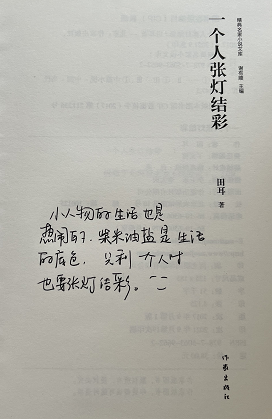 精典名家小说文库
谢有顺 主编
一个人张灯结彩
田耳 著
小人物的生活也是
热闹的。柴米油盐是生活
的底色，只剩一个人时
也要张灯结彩。
作家出版社